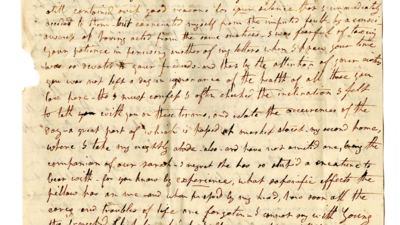 still contained such good reasons for your silence that I immediately
ceased to blame but exonerated myself from the imputed fault by a consci
ousness of having acted from the same motives. I was fearful of taxing
your patience in perusing another of my letters when I knew your time
was so devoted to your friends and that by the attention of your
you was not left a day in ignorance of the health of all those you
love here - tho I must confess I often checked the inclination I felt
to talk with you on these terms, and relate the occurrences of the
day - a great part of which is passed at market street my second home,
where I take my nightly abode also and have not omitted one, being the
companion of our Sarah - I regret she has so stupid a creature to
bear with - for you know by experience, what soporific effects the
pillow has on me and when pressed by my head, how soon all the
cares and troubles of life are forgotten - I cannot say with Young